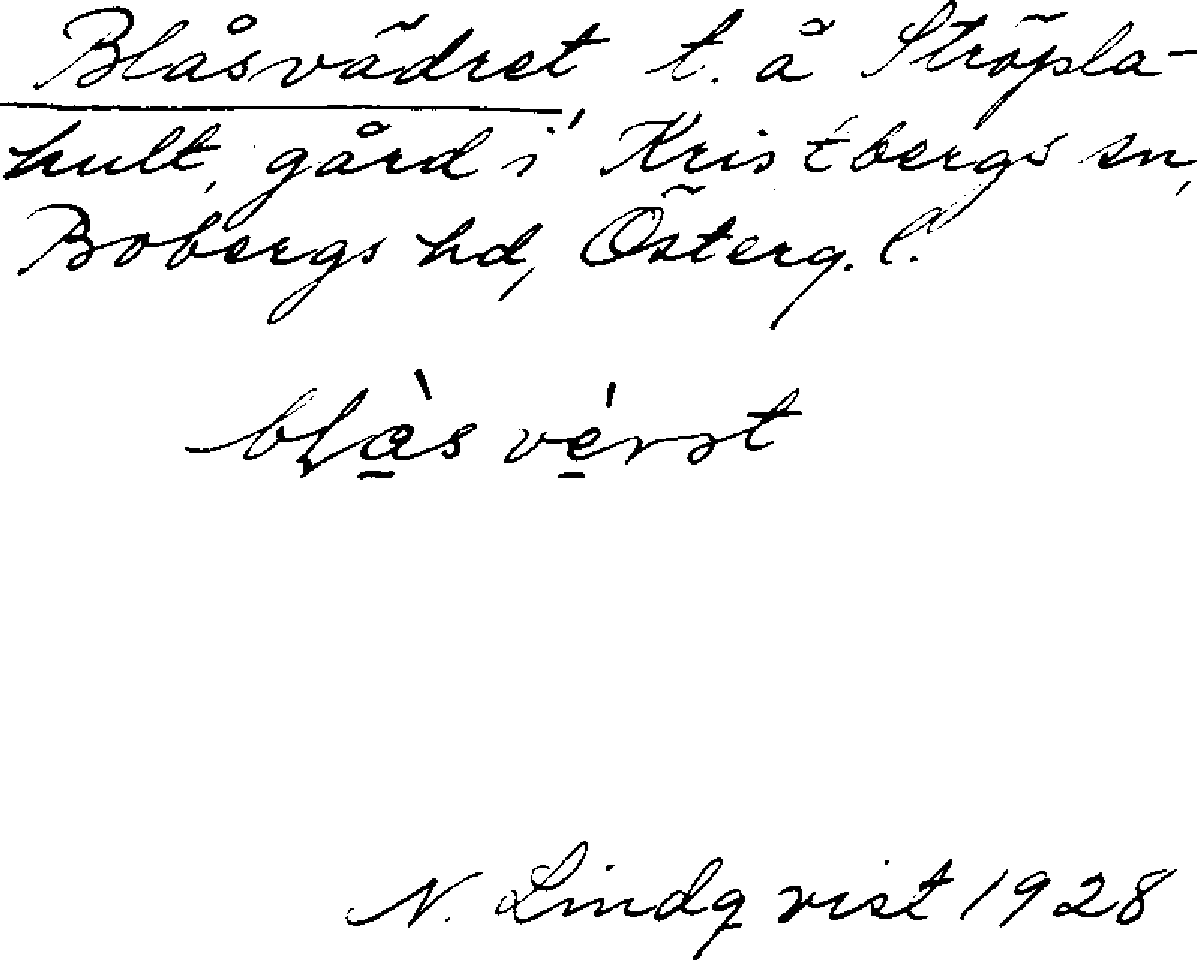 Blåsvädret t. å Ströpla-
hult, gård i Kristbergs sn,
Bobergs hd, Österg. l.
N. Lindqvist 1928